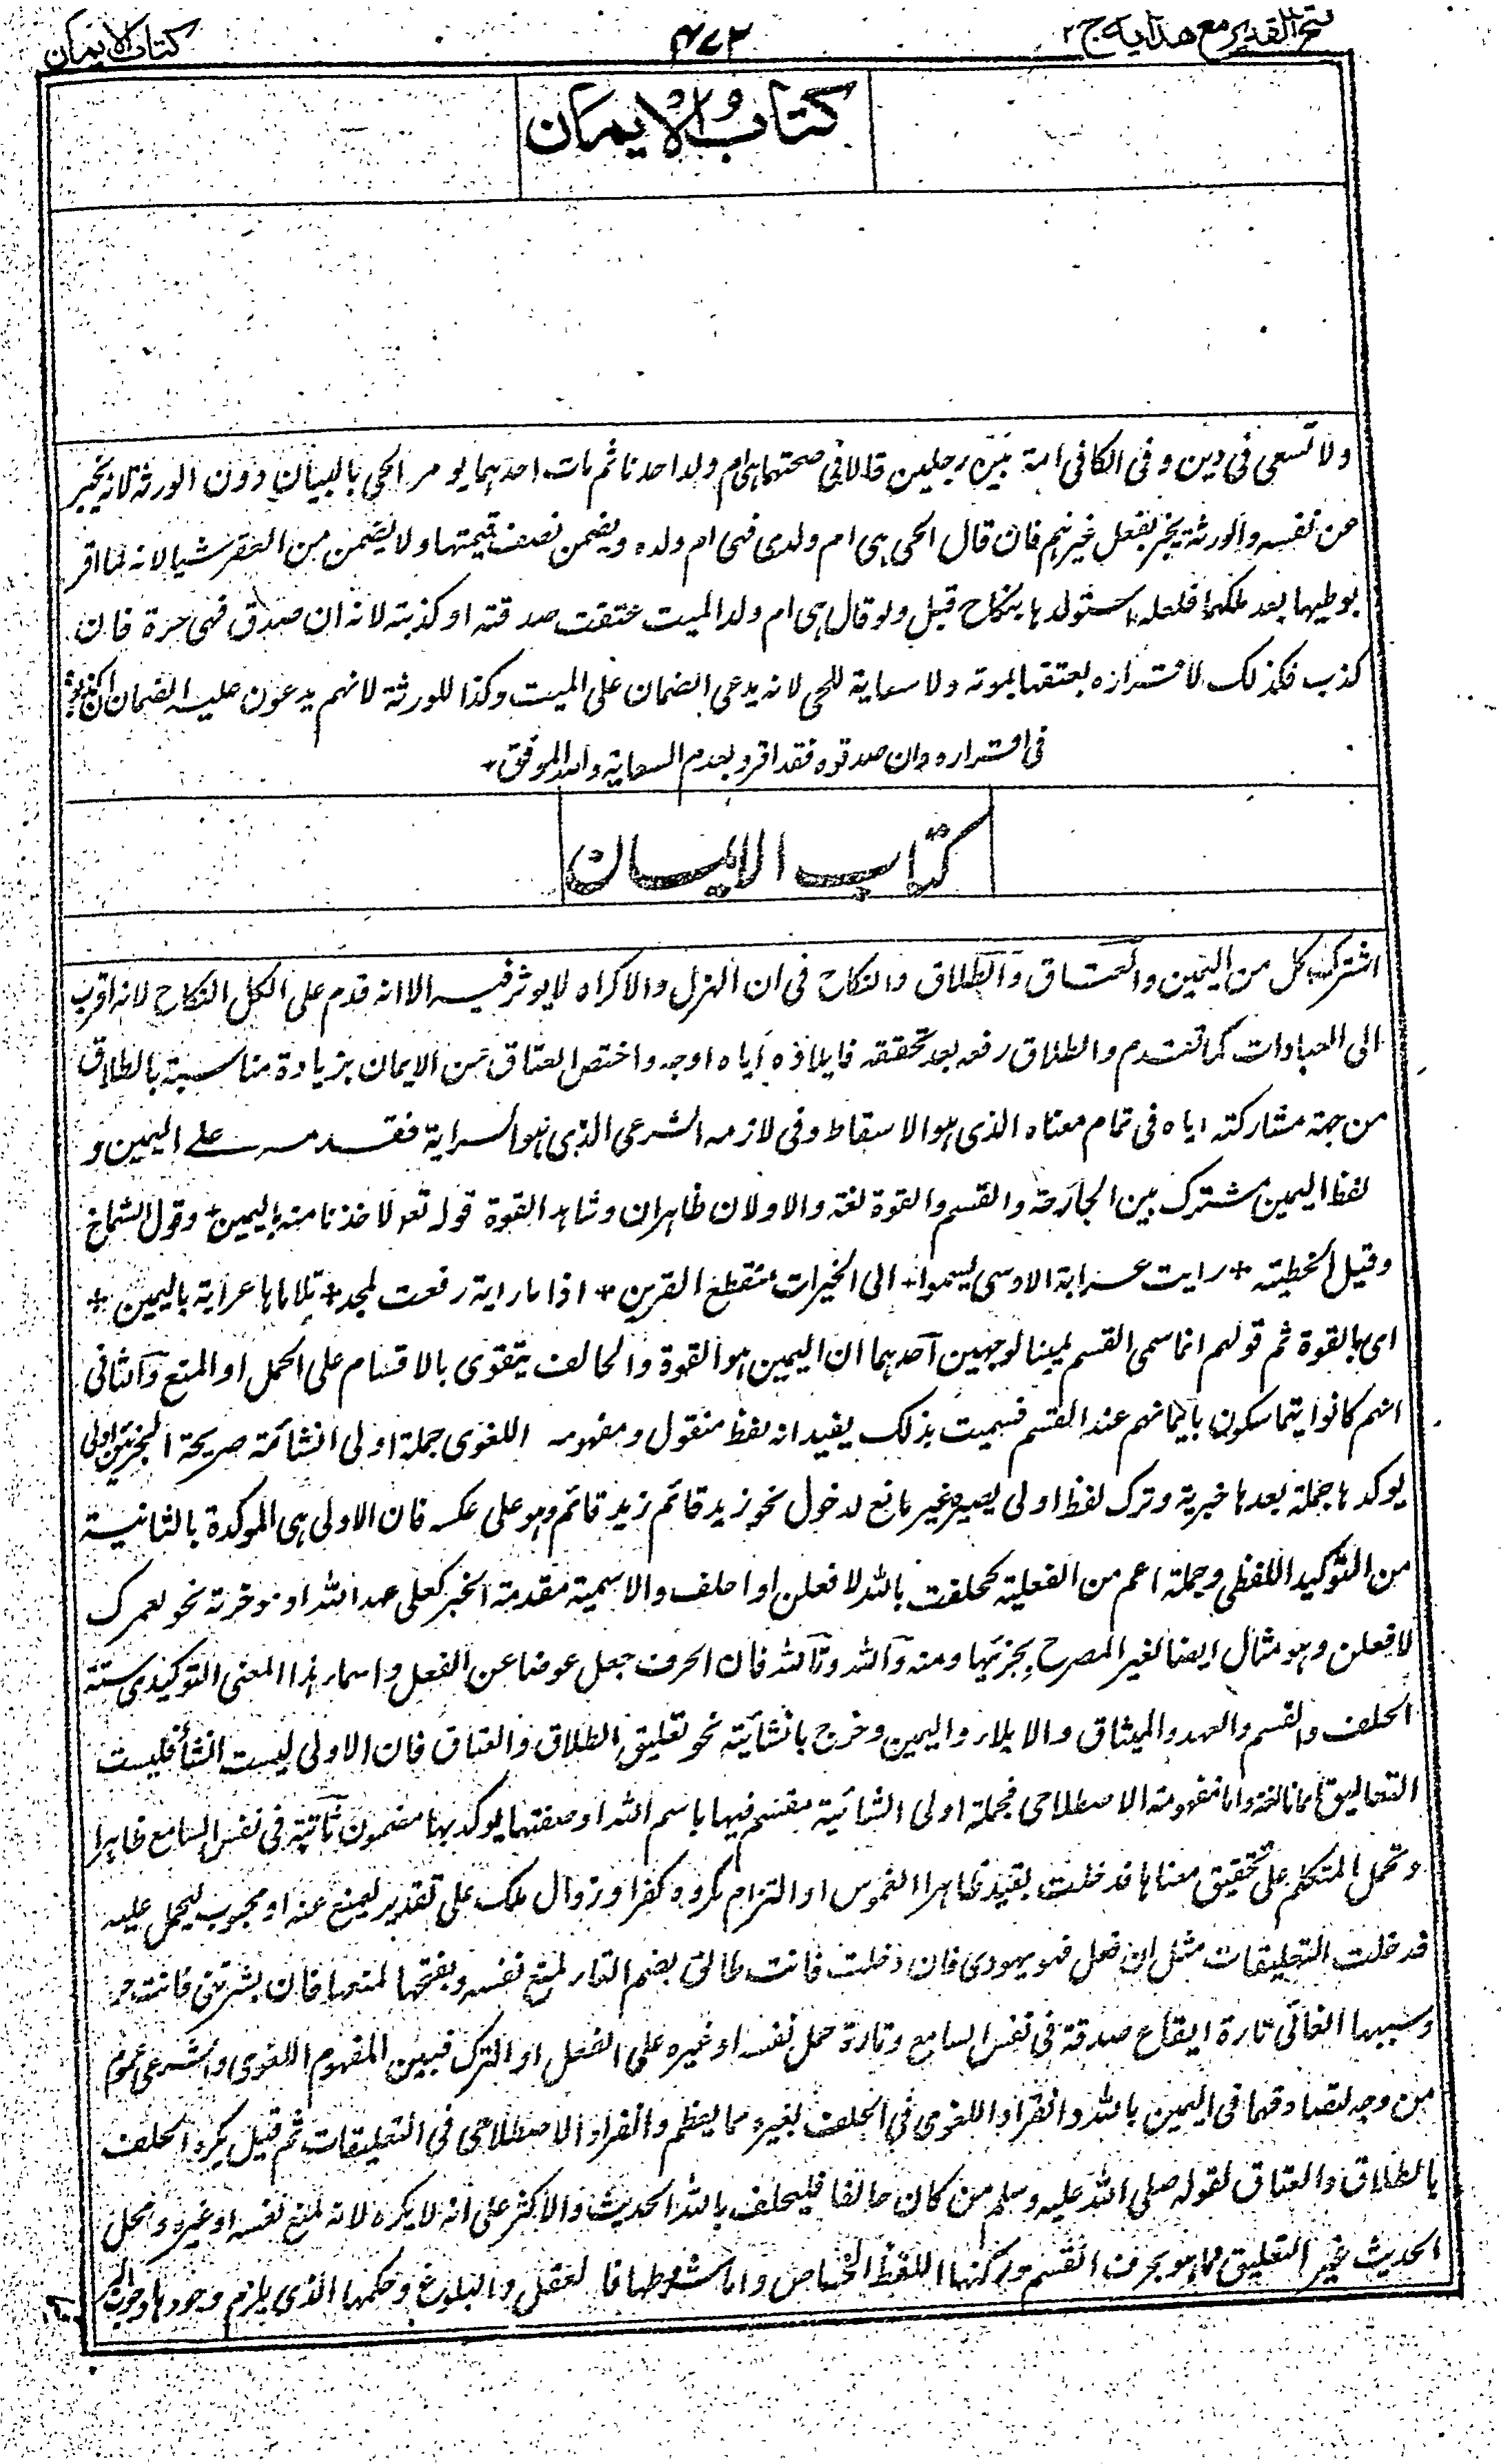 فتح القدير مع هدايه ج ٢
٤٧٣
كتاب الايمان
كتاب الايمان
ولا تسعى فى دين وفى الكافى امة بين رجلين قالا فى صحتهما هى ام ولد احدنا ثم مات احدهما يومر الحى بالبيان دون الورثة لانه يخبر
عن نفسه والورثة يخبر بفعل غيرهم فان قال الحى هى ام ولدى فهى ام ولده ويضمن نصف قيمتها ولا يضمن من العقر شيا لانه لما اقر
بوطيها بعد ملكهما فلعله استولدها بنكاح قبل ولو قال هى ام ولد الميت عتقت صدقته او كذبته لانه ان صدق فهى حرة فان
كذب فكذلك لاقراره بعتقها بموته ولا سعاية للحى لانه يدعى الضمان على الميت وكذا للورثة لانهم يدعون عليه الضمان ان كذبوه
فى اقراره وان صدقوه فقد اقروا بعدم السعاية والله الموفق +
كتاب الايمان
اشترك كل من اليمين والعتاق والطلاق والنكاح فى ان الهزل والاكراه لا يوثر فيه الا انه قدم على الكل النكاح لانه اقرب
الى العبادات كما تقدم والطلاق رفعه بعد تحققه فايلاؤه اياه اوجه واختص العتاق عن الايمان بزيادة مناسبة بالطلاق
من جهة مشاركته اياه فى تمام معناه الذى هو الاسقاط وفى لازمه الشرعى الذى هو السراية فقدمه على اليمين و
لفظ اليمين مشترك بين الجارحة والقسم والقوة لغة والاولان ظاهران وشاهد القوة قوله تعه لاخذنا منه باليمين + وقول الشماخ
وقيل الحطيئه + رايت عرابة الاوسى يسموا + الى الخيرات منقطع القرين + اذا ما راية رفعت لمجد + تلقاها عرابة باليمين +
اى بالقوة ثم قولهم انما سمى القسم يمينا لوجهين احدهما ان اليمين هو القوة والحالف يتقوى بالاقسام على الحمل او المنع والثانى
انهم كانوا يتماسكون بايمانهم عند القسم فسميت بذلك يفيد انه لفظ منقول ومفهومه اللغوى جملة اولى انشائية صريحة الجزئين اولى
يوكد ها جملة بعدها خبرية وترك لفظ اولى يصيره غير مانع لدخول نحو زيد قائم زيد قائم وهو على عكسه فان الاولى هى الموكدة بالثانية
من التوكيد اللفظى وجملة اعم من الفعلية كحلفت بالله لافعلن او احلف والاسمية مقدمة الخبر كعلى عهد الله او موخرته نحو لعمرك
لافعلن وهو مثال ايضا لغير المصرح بجزئيها ومنه والله وتالله فان الحرف جعل عوضا عن الفعل واسماء هذا المعنى التوكيدى ستة
الحلف والقسم والعهد والميثاق والايلاء واليمين وخرج بانشائية نحو تعليق الطلاق والعتاق فان الاولى ليست انشأ فليست
التعاليق ايمانا لغة واما مفهومه الاصطلاحى فجملة اولى انشائية مقسم فيها باسم الله او صفته يوكد بها مضمون ثانية فى نفس السامع ظاهرا
وتحمل المتكلم على تحقيق معناها فدخلت بقيد ظاهرا الغموس او التزام مكروه كفر او زوال ملك على تقدير ليمنع عنه او محبوب ليحمل عليه
فدخلت التعليقات مثل ان فعل فهو يهودى فان دخلت فانت طالق بضم التاء لمنع نفسه وبفتحها لمنعها فان بشرتنى فانت حر
وسببها الغائى تارة ايقاع صدقه فى نفس السامع وتارة حمل نفسه او غيره على الفعل او الترك فبين المفهوم اللغوى والشرعى عموم
من وجه لتصادقهما فى اليمين بالله وانفراد اللغوى فى الحلف بغيره مما يعظم وانفراد الاصطلاحى فى التعليقات ثم قيل يكره الحلف
بالطلاق والعتاق لقوله صلى الله عليه وسلم من كان حالفا فليحلف بالله الحديث والاكثر على انه لا يكره لانه لمنع نفسه او غيره ومحمل
الحديث غير التعليق مما هو بحرف القسم وركنها اللفظ الخاص واما شروطها فالعقل والبلوغ وحكمها الذى يلزم وجودها وجوب البر